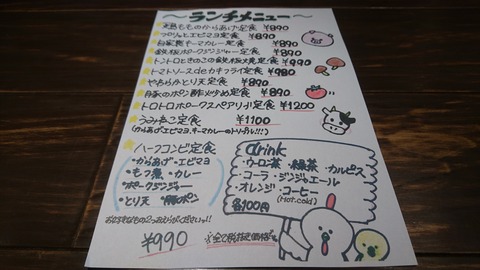 ～ランチメニュー～
鶏もものからあげ定食 ¥890
プリッとエビマヨ定食 ¥890
自家製キーマカレー定食 ¥890
鉄板ポークジンジャー定食 ¥890
トントロときのこの鉄板焼定食 ¥990
トマトソースdeカキフライ定食 ¥980
やわらかとり天定食 ¥890
豚バラのポン酢炒め定食 ¥890
トロトロポークスペアリブ定食 ¥1200
うみねこ定食 ¥1100
(からあげ、エビマヨ、キーマカレーのトリプル!!!)
ハーフコンビ定食
・からあげ・エビマヨ
・もつ煮・カレー
・ポークジンジャー
・とり天・豚ポン
お好きなもの2つお選びくださいっ!!
¥990
drink
・ウーロン茶・緑茶・カルピス
・コーラ・ジンジャエール
・オレンジ・コーヒー
(Hot.cold)
各100円
全て税抜価格